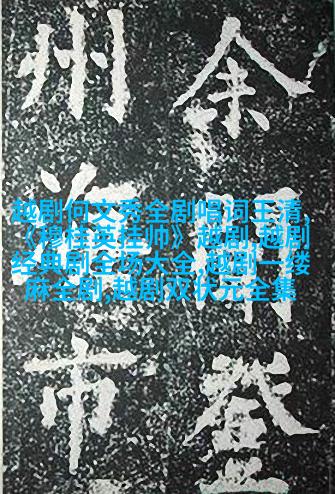 余聞登
州海市
越剧何文秀全剧唱词王清,
《穆桂英挂帅》越剧,越剧
经典剧全场大全,越剧一缕
麻全剧,越剧双状元全集